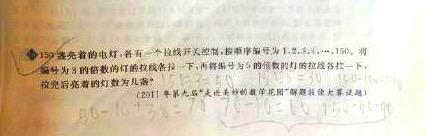 150盏亮着的电灯,各有一个拉线开关控制,按顺序编号为1,2,3,4,…,150。将
编号为3的倍数的灯的拉线各拉一下,再将编号为5的倍数的灯的拉线各拉一下,
拉完后亮着的灯数为几盏?
150÷3=50 150÷5=30
(2011年第九届“走进美妙的数学花园”解题技能大赛试题)
50-10+30=70 70-10=60 150-60=90